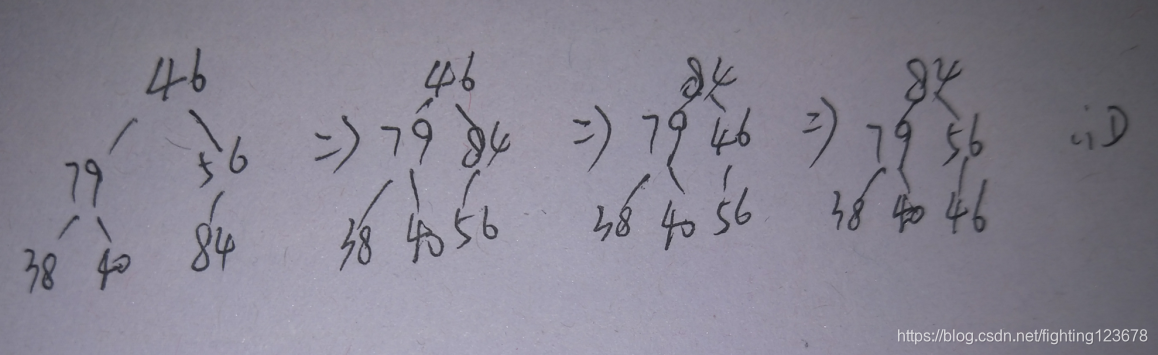 46 46 84 84
79 56 => 79 84 => 79 46 => 79 56 ∴D
38 40 84 38 40 56 38 40 56 38 40 46
https://blog.csdn.net/fighting123678